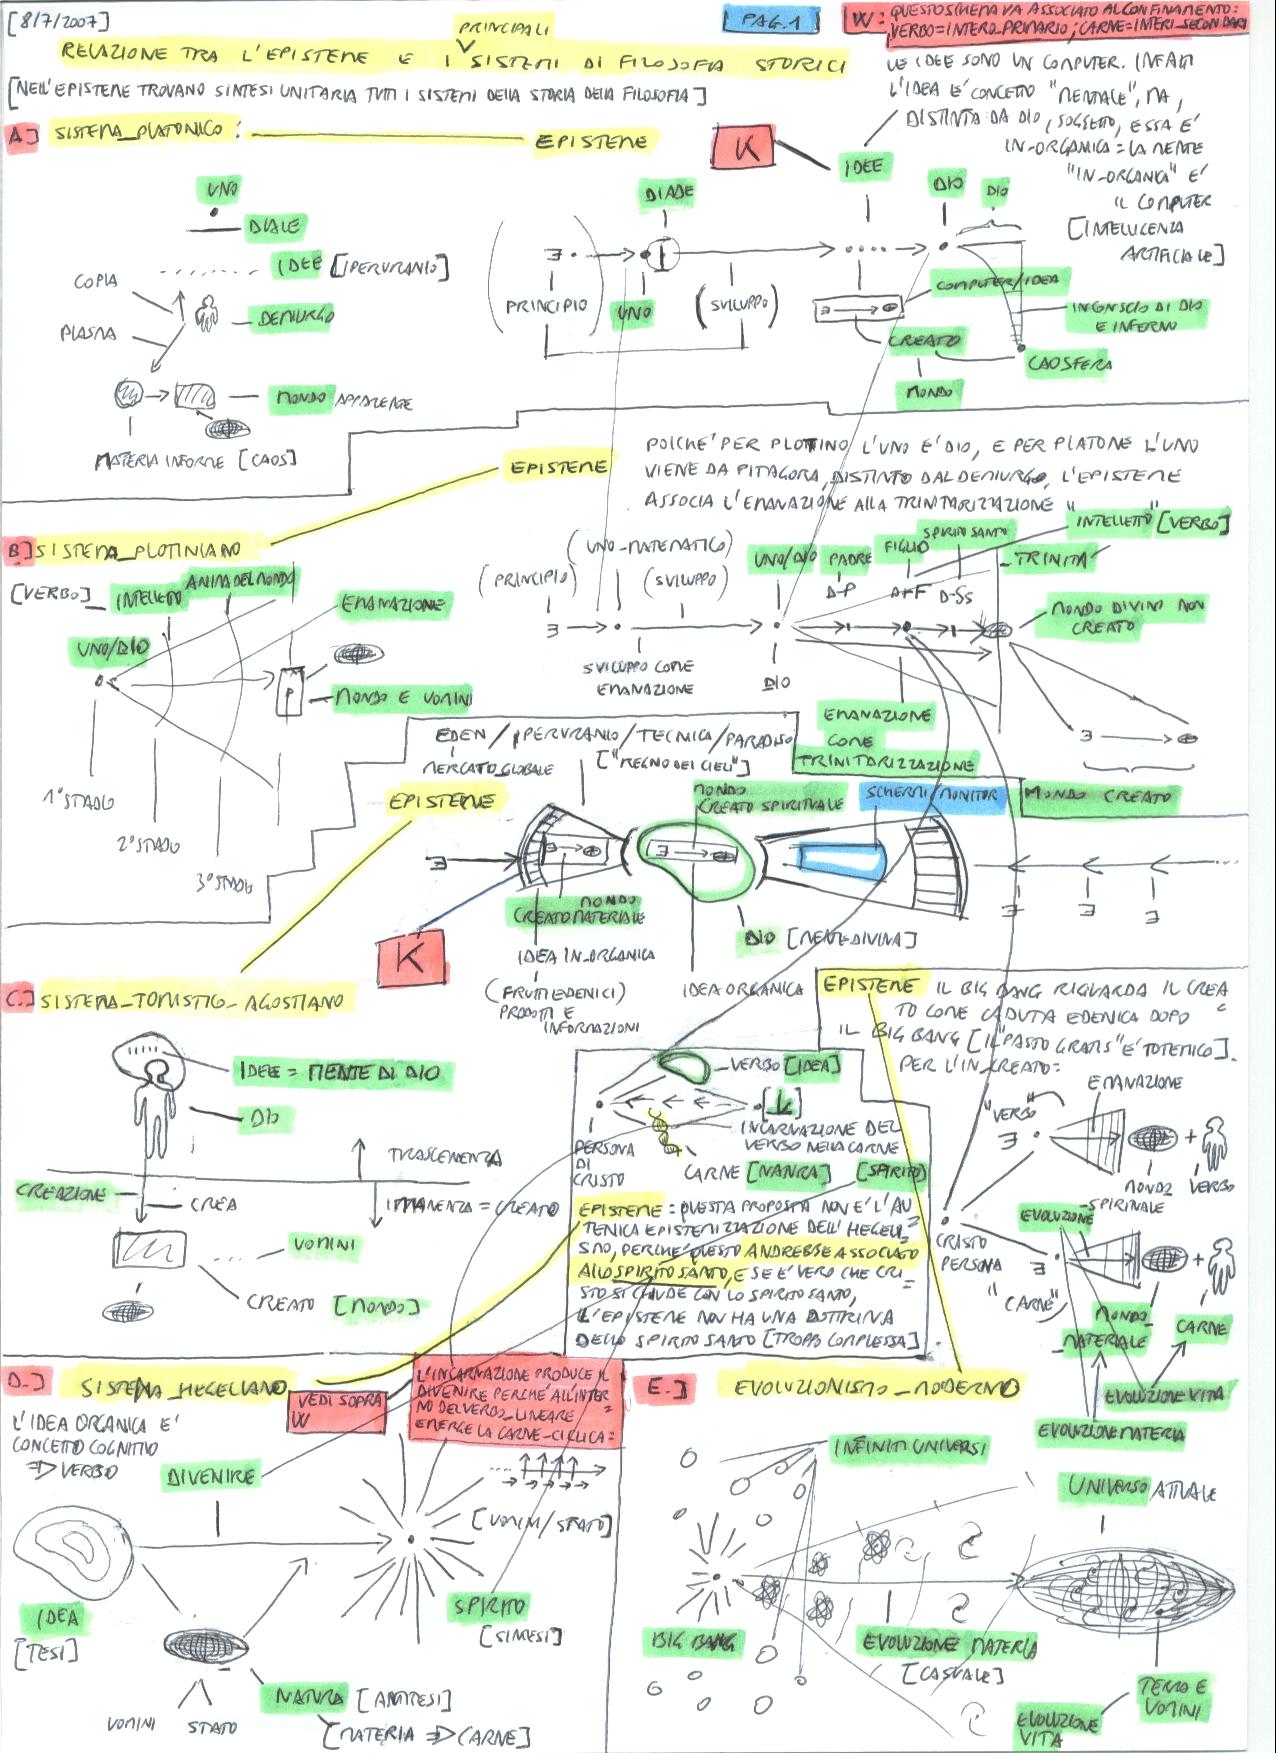 [8/7/2007]
PAG.1
W: QUESTO SCHEMA VA ASSOCIATO AL CONFINAMENTO:
VERBO=INTERO_PRIMARIO; CARNE=INTERI_SECONDARI
PRINCIPALI
RELAZIONE TRA L'EPISTEME E I SISTEMI DI FILOSOFIA STORICI
[NELL'EPISTEME TROVANO SINTESI UNITARIA TUTTI I SISTEMI DELLA STORIA DELLA FILOSOFIA]
LE IDEE SONO UN COMPUTER. INFATTI
L'IDEA E' CONCETTO "MENTALE", MA,
DISTINTA DA DIO, SOGGETTO, ESSA E'
IN-ORGANICA = LA MENTE
"IN-ORGANICA" E'
IL COMPUTER
[INTELLIGENZA
ARTIFICIALE]
A.] SISTEMA_PLATONICO:
EPISTEME
K
UNO
DIADE
IDEE [IPERURANIO]
COPIA
PLASMA
DEMIURGO
MONDO APPARENTE
MATERIA INFORME [CAOS]
DIADE
IDEE
DIO
DIO
(PRINCIPIO)
UNO
(SVILUPPO)
COMPUTER/IDEA
CREATO
MONDO
INCONSCIO DI DIO
E INFERNO
CAOSFERA
EPISTEME
POICHE' PER PLOTINO L'UNO E' DIO, E PER PLATONE L'UNO
VIENE DA PITAGORA, DISTINTO DAL DEMIURGO, L'EPISTEME
ASSOCIA L'EMANAZIONE ALLA TRINITARIZZAZIONE
B.] SISTEMA_PLOTINIANO
[VERBO]_INTELLETTO
ANIMA DEL MONDO
EMANAZIONE
UNO/DIO
P
MONDO E UOMINI
1° STADIO
2° STADIO
3° STADIO
(UNO-MATEMATICO)
(PRINCIPIO)
(SVILUPPO)
UNO/DIO
PADRE
FIGLIO
SPIRITO SANTO
INTELLETTO [VERBO]
TRINITA'
D-P
D-F
D-SS
MONDO DIVINO NON
CREATO
SVILUPPO COME
EMANAZIONE
DIO
EMANAZIONE
COME
TRINITARIZZAZIONE
MONDO CREATO
EDEN/IPERURANIO/TECNICA/PARADISO
MERCATO_GLOBALE
["REGNO DEI CIELI"]
EPISTEME
MONDO
CREATO SPIRITUALE
SCHERMI/MONITOR
MONDO
CREATO MATERIALE
K
DIO [MENTE-DIVINA]
IDEA IN_ORGANICA
(FRUTTI EDENICI)
PRODOTTI E
INFORMAZIONI
IDEA ORGANICA
C.] SISTEMA_TOMISTICO_AGOSTIANO
IDEE = MENTE DI DIO
DIO
TRASCENDENZA
CREAZIONE
CREA
IMMANENZA = CREATO
UOMINI
CREATO [MONDO]
EPISTEME
IL BIG BANG RIGUARDA IL CREA
TO COME CADUTA EDENICA DOPO
IL BIG BANG [IL "PASTO GRATIS" E' TOTEMICO].
PER L'IN_CREATO:
VERBO [IDEA]
[K]
INCARNAZIONE DEL
VERBO NELLA CARNE
PERSONA
DI
CRISTO
CARNE [NATURA]
[SPIRITO]
EPISTEME: QUESTA PROPOSTA NON E' L'AU
TENTICA EPISTEMIZZAZIONE DELL'HEGELI
SMO, PERCHE' QUESTO ANDREBBE ASSOCIATO
ALLO SPIRITO SANTO, E SE E' VERO CHE CRI
STO SI CHIUDE CON LO SPIRITO SANTO,
L'EPISTEME NON HA UNA DOTTRINA
DELLO SPIRITO SANTO [TROPPO COMPLESSA]
EMANAZIONE
"VERBO"
MONDO
SPIRITUALE
VERBO
EVOLUZIONE
CRISTO
PERSONA
"CARNE"
MONDO_
MATERIALE
CARNE
EVOLUZIONE VITA
EVOLUZIONE MATERIA
D.] SISTEMA_HEGELIANO
VEDI SOPRA
W
L'INCARNAZIONE PRODUCE IL
DIVENIRE PERCHE' ALL'INTER
NO DEL VERBO_LINEARE
EMERGE LA CARNE-CICLICA
L'IDEA ORGANICA E'
CONCETTO COGNITIVO
=> VERBO
DIVENIRE
[UOMINI/STATO]
IDEA
[TESI]
SPIRITO
[SINTESI]
NATURA [ANTITESI]
UOMINI
STATO
[MATERIA => CARNE]
E.] EVOLUZIONISMO_MODERNO
INFINITI UNIVERSI
UNIVERSO ATTUALE
BIG BANG
EVOLUZIONE MATERIA
[CASUALE]
TERRA E
UOMINI
EVOLUZIONE
VITA